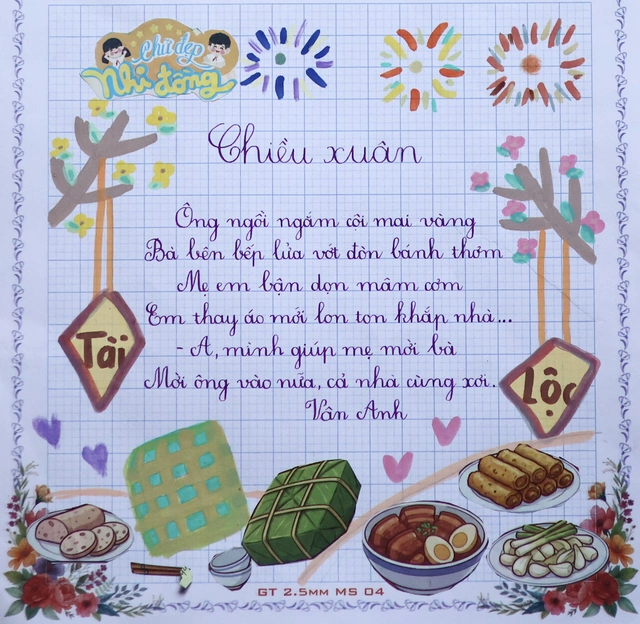 Chữ đẹp
Nhi đồng
Chiều xuân
Ông ngồi ngắm cội mai vàng
Bà bên bếp lửa vớt đòn bánh thơm
Mẹ em bận dọn mâm cơm
Em thay áo mới lon ton khắp nhà...
- A, mình giúp mẹ mời bà
Mời ông vào nữa, cả nhà cùng xơi.
Vân Anh
Tài
Lộc
GT 2.5MM MS 04